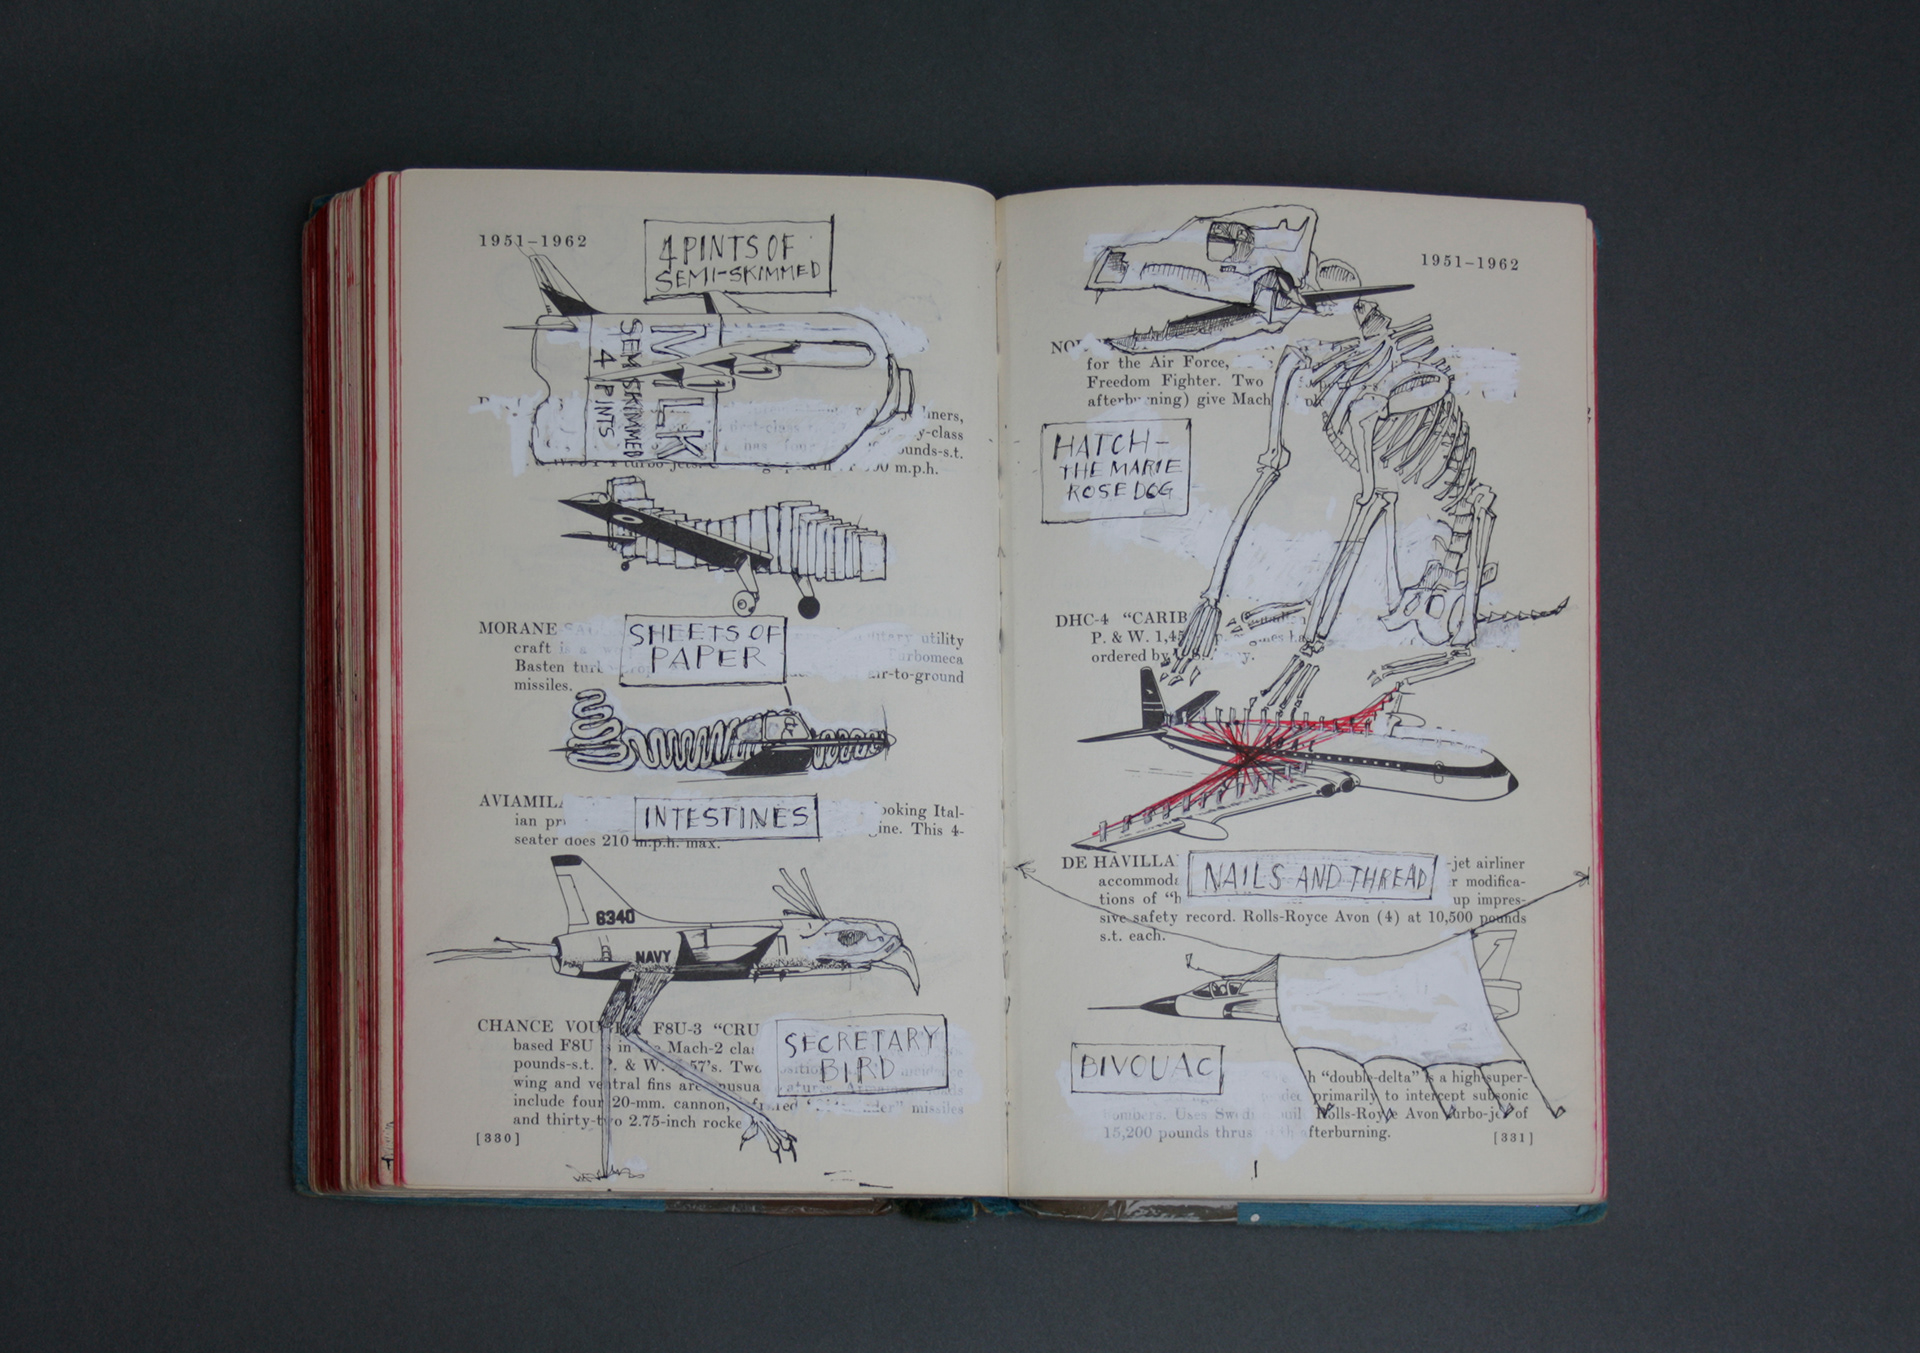 1951–1962
4 PINTS OF
SEMI-SKIMMED
MILK
SEMI SKIMMED
4 PINTS
liners,
y-class
pounds-s.t.
m.p.h.
MORANE
SHEETS OF
PAPER
utility
craft is a
Turbomeca
Basten
air-to-ground
missiles.
AVIAMILA
INTESTINES
looking Ital-
ian
This 4-
seater does 210 m.p.h. max.
6340
NAVY
CHANCE VOUGHT F8U-3 “CRU
based F8U is in the Mach-2
pounds-s.t. P. & W. J57's. Two
wing and ventral fins are unusual features.
include four 20-mm. cannon, infrared missiles
and thirty-two 2.75-inch
SECRETARY
BIRD
[330]
1951–1962
for the Air Force,
Freedom Fighter. Two
afterburning) give Mach
HATCH –
THE MARIE
ROSE DOG
DHC-4 “CARIB
P. & W. 1,45
ordered by
DE HAVILLA
-jet airliner
NAILS AND THREAD
modifica-
tions of “h
up impres-
sive safety record. Rolls-Royce Avon (4) at 10,500 pounds
s.t. each.
BIVOUAC
“double-delta” is a high super-
primarily to intercept subsonic
bombers. Uses Rolls-Royce Avon turbo-jet of
15,200 pounds afterburning.
[331]